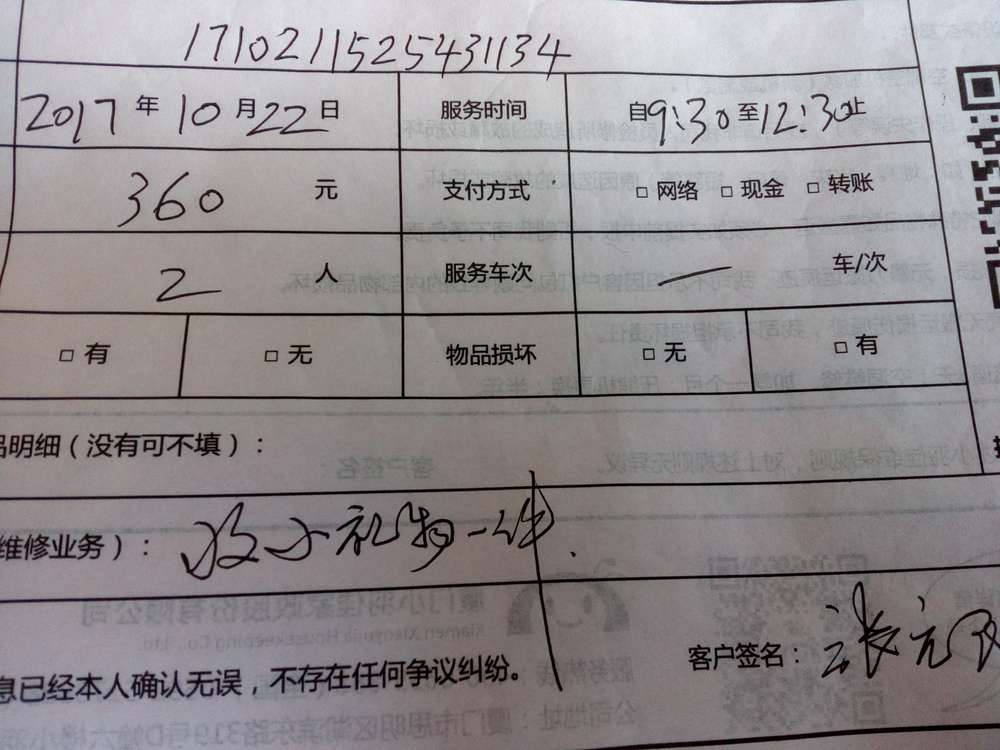 1710211525431134
2017年10月22日 服务时间 自9:30至12:30止
360 元 支付方式 □ 网络 □ 现金 □ 转账
2 人 服务车次 一 车/次
□ 有 □ 无 物品损坏 □ 无 □ 有
品明细（没有可不填）：
维修业务）： 小礼物一件.
息已经本人确认无误，不存在任何争议纠纷。
客户签名：张元